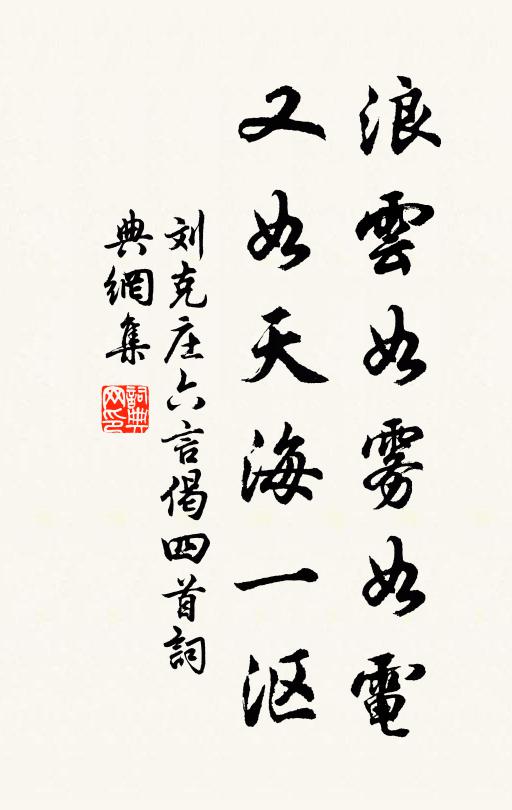 浪雲如雾如電
又如天海一沤
刘克庄六言偈四首詞
典網集
詞典
网印